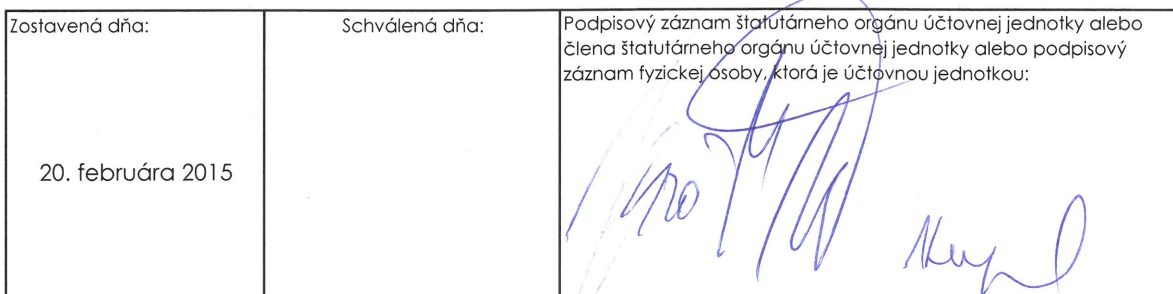 Zostavená dňa:
Schválená dňa:
Podpisový záznam štatutárneho orgánu účtovnej jednotky alebo
člena štatutárneho orgánu účtovnej jednotky alebo podpisový
záznam fyzickej osoby, ktorá je účtovnou jednotkou:
20. februára 2015